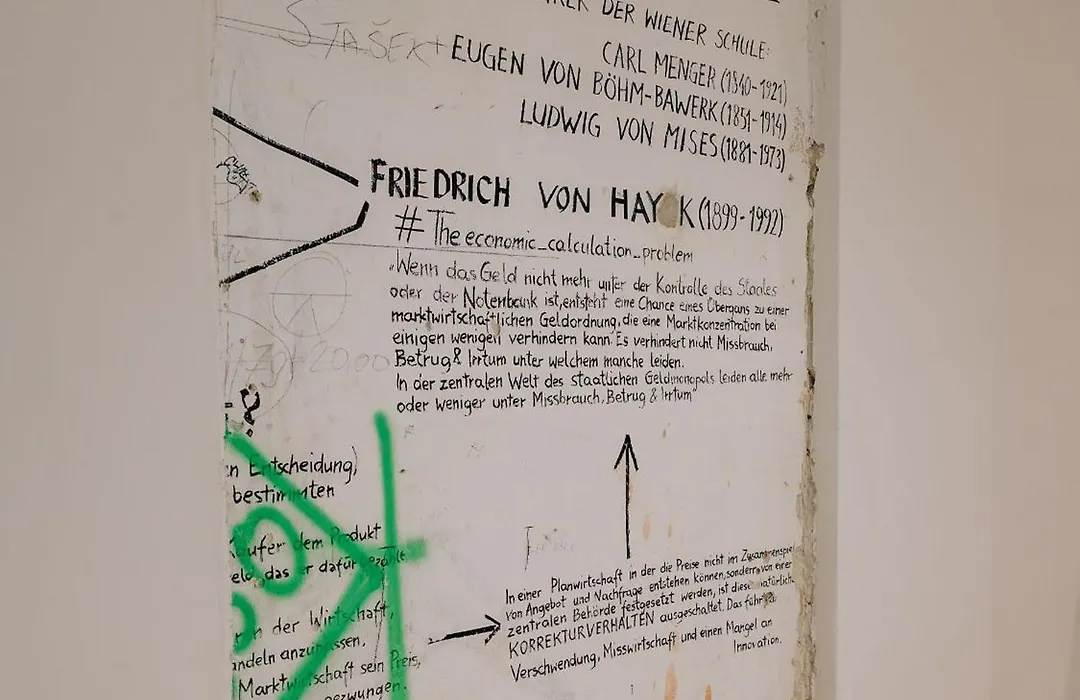 DER WIENER SCHULE:
CARL MENGER (1840-1921)
STAŠEK + EUGEN VON BÖHM-BAWERK (1851-1914)
LUDWIG VON MISES (1881-1973)
FRIEDRICH VON HAY K (1899-1992)
# The economic_calculation_problem
„Wenn das Geld nicht mehr unter der Kontrolle des Staates
oder der Notenbank ist, entsteht eine Chance eines Übergans zu einer
marktwirtschaftlichen Geldordnung, die eine Marktkonzentration bei
einigen wenigen verhindern kann. Es verhindert nicht Missbrauch,
Betrug & Irrtum unter welchem manche leiden.
In der zentralen Welt des staatlichen Geldmonopols leiden alle mehr
oder weniger unter Missbrauch, Betrug & Irrtum"
?
n Entscheidung)
bestimmten
Käufer dem Produkt
eld, das er dafür bezahlt
n der Wirtschaft,
andeln anzupassen,
Marktwirtschaft sein Preis,
gezwungen.
In einer Planwirtschaft in der die Preise nicht im Zusammenspiel
von Angebot und Nachfrage entstehen können, sondern von einer
zentralen Behörde festgesetzt werden, ist dieses natürliche
KORREKTURVERHALTEN ausgeschaltet. Das führt zu
Verschwendung, Misswirtschaft und einen Mangel an
Innovation.